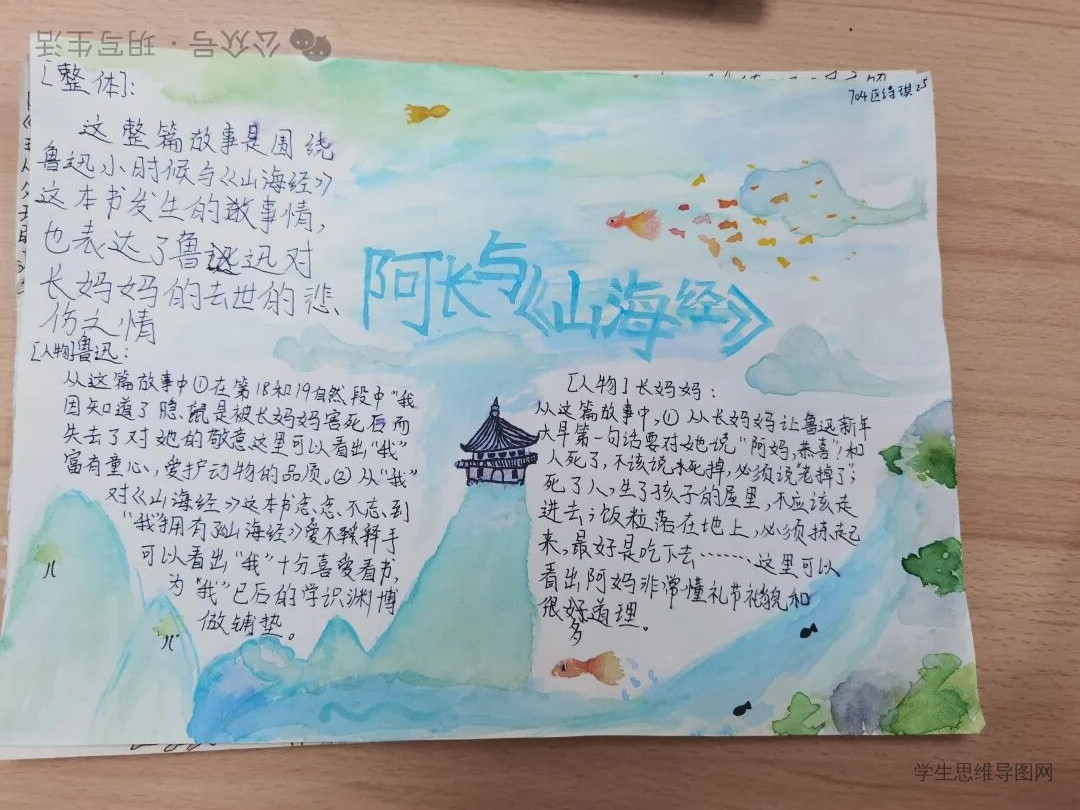 公众号·玥写生活
704区绮琪25
[整体]:
这整篇故事是围绕
鲁迅小时候与《山海经》
这本书发生的故事情,
也表达了鲁迅迅对
长妈妈的去世的悲
伤之情
阿长与《山海经》
[人物]鲁迅:
从这篇故事中①在第18和19自然段中"我
因知道了隐鼠是被长妈妈害死后而
失去了对她的敬意这里可以看出"我"
富有童心,爱护动物的品质。②从"我"
对《山海经》这本书念念不忘、到
"我"拥有《山海经》爱不释手
可以看出"我"十分喜爱看书,
为"我"已后的学识渊博
做铺垫。
[人物]长妈妈:
从这篇故事中,①从长妈妈让鲁迅新年
大早第一句话要对她说"阿妈,恭喜"!和
人死了,不该说死掉,必须说"老掉了";
死了人,生了孩子的屋里,不应该走
进去;饭粒落在地上,必须拣起
来,最好是吃下去………这里可以
看出阿妈非常懂礼节礼貌和
很多道理。
学生思维导图网